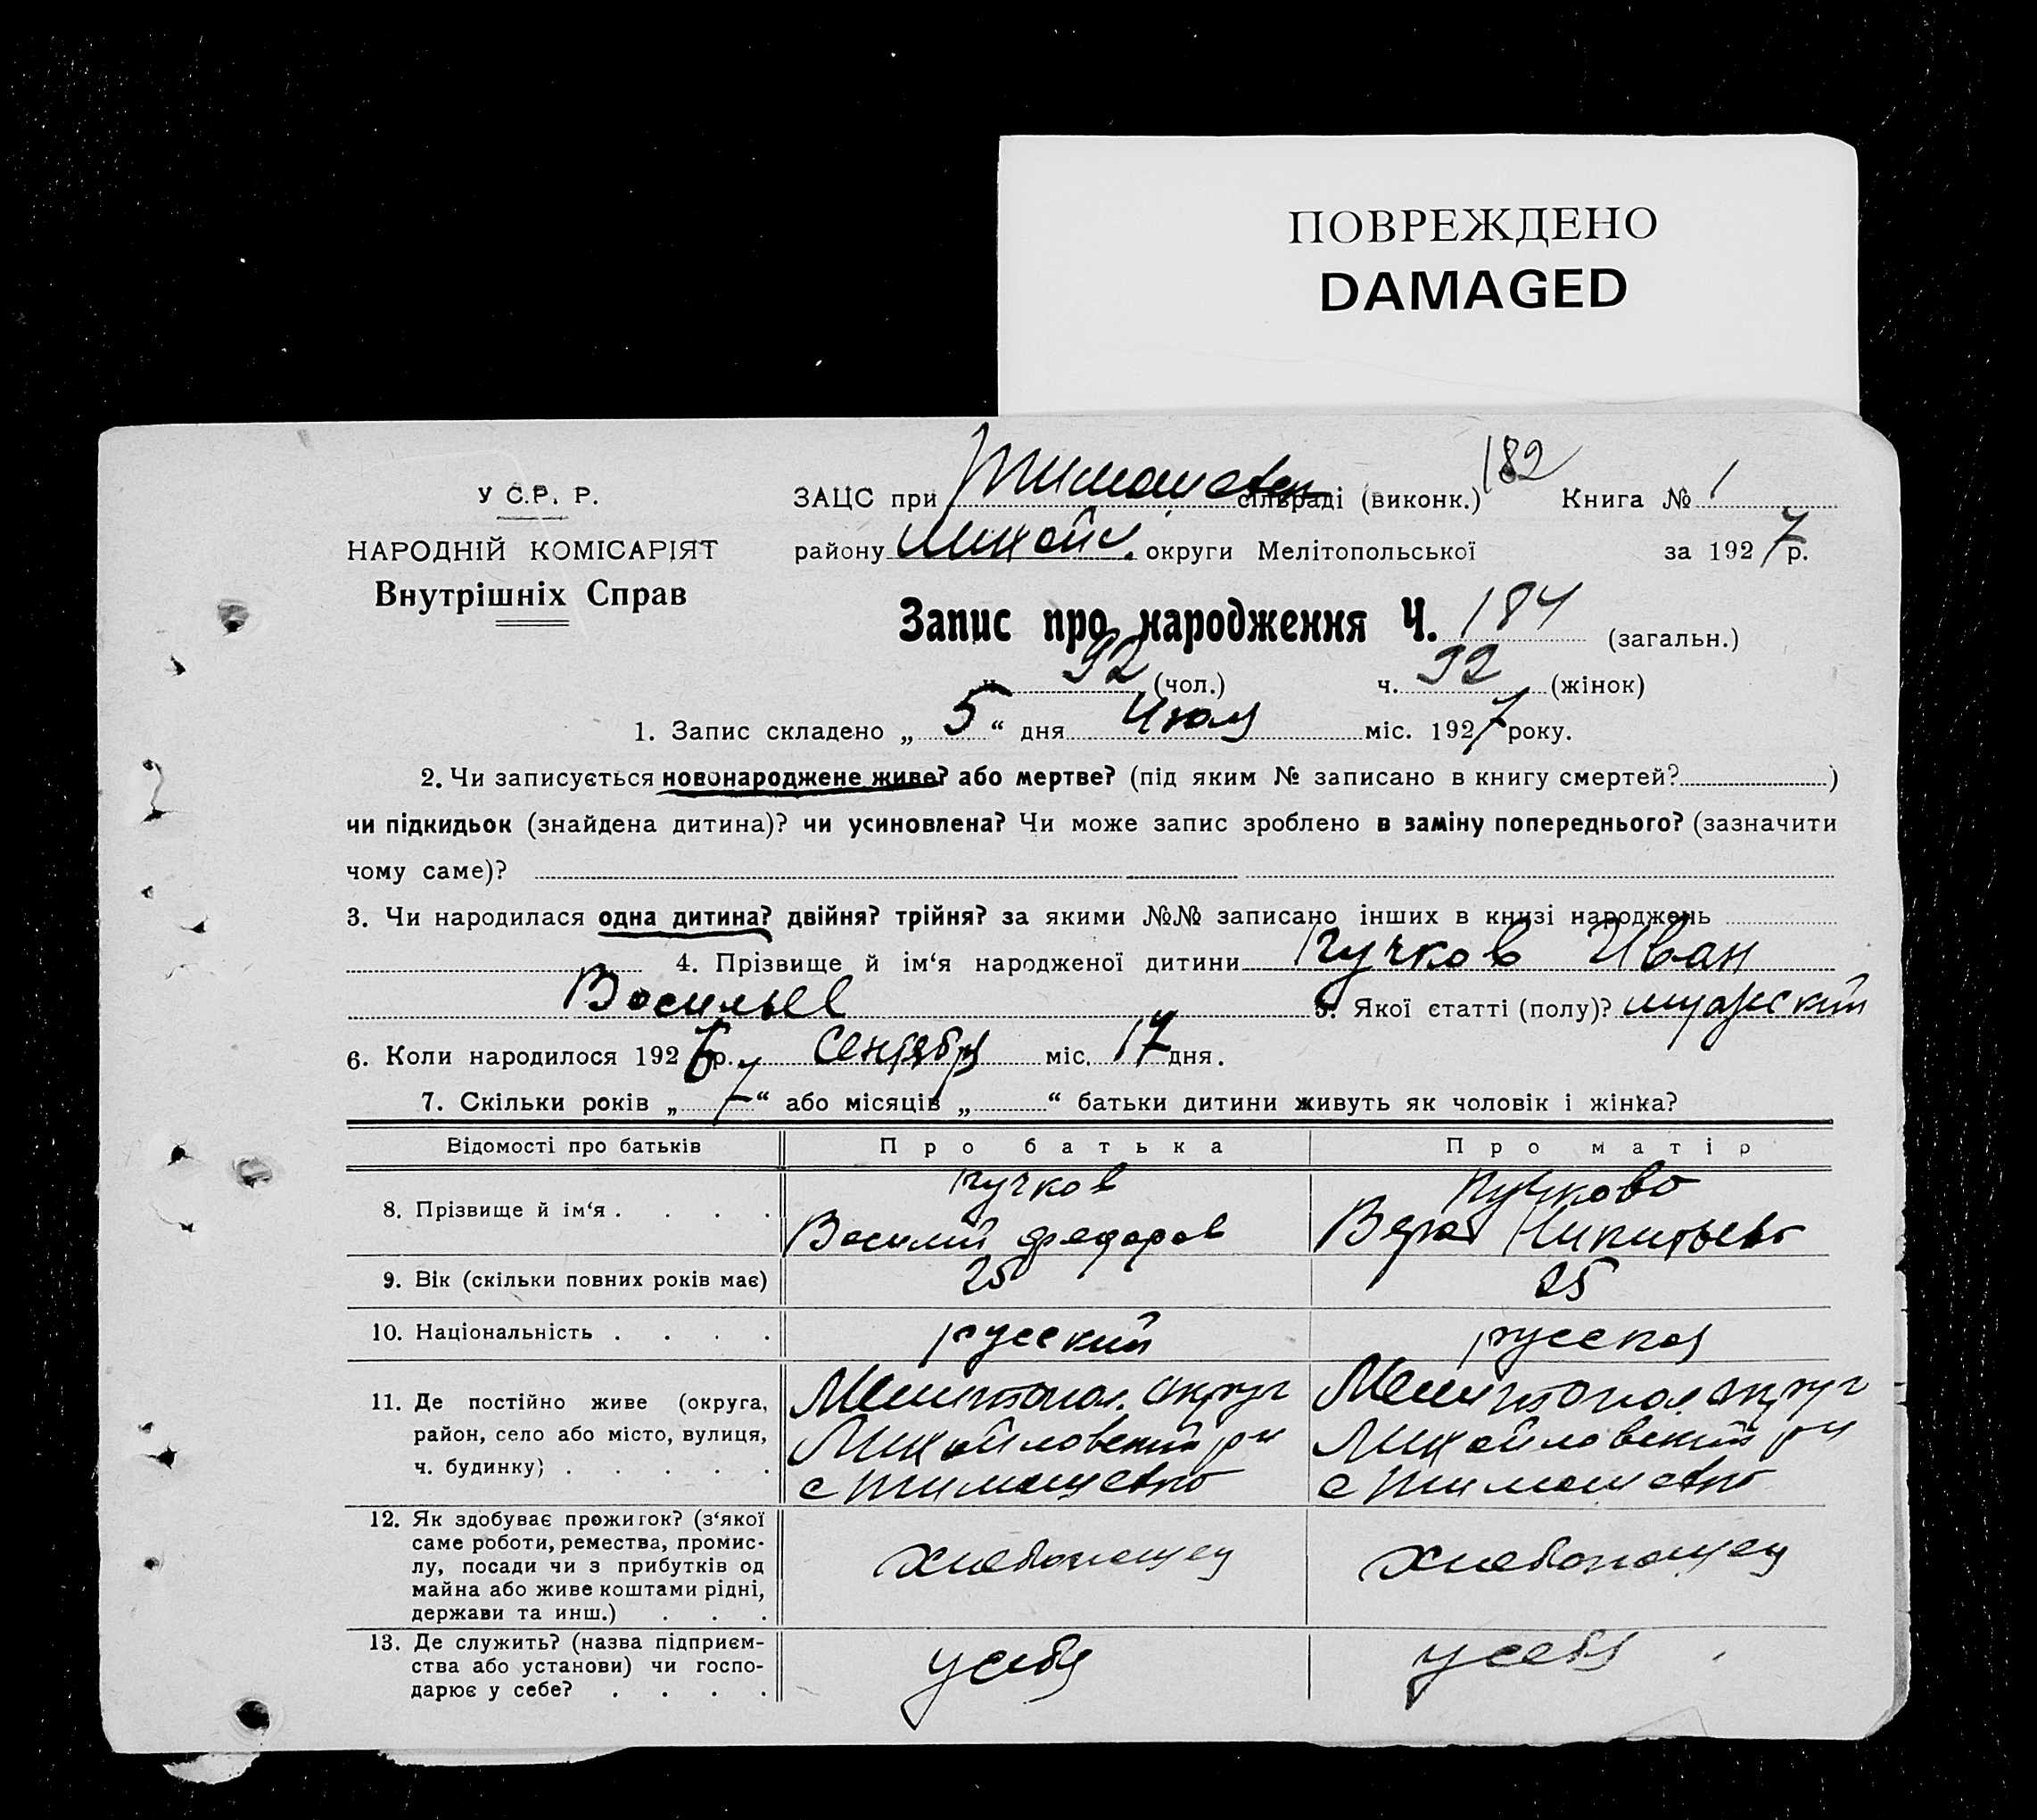 ПОВРЕЖДЕНО
DAMAGED
У С.Р. Р.
НАРОДНІЙ КОМІСАРІЯТ
Внутрішніх Справ
182
ЗАЦС при Тимашевк сільраді (виконк.) Книга № 1
району Михайл. округи Мелітопольської за 1927 р.
Запис про народження Ч. 184 (загальн.)
ч. 92 (чол.) ч. 92 (жінок)
1. Запис складено „ 5 “ дня Июля міс. 1927 року.
2. Чи записується новонароджене живе? або мертве? (під яким № записано в книгу смертей? )
чи підкидьок (знайдена дитина)? чи усиновлена? Чи може запис зроблено в заміну попереднього? (зазначити
чому саме)?
3. Чи народилася одна дитина? двійня? трійня? за якими №№ записано інших в книзі народжень
4. Прізвище й ім‘я народженої дитини Пучков Иван
Васильев 5. Якої статті (полу)? мужский
6. Коли народилося 1926 р. Сентября міс. 17 дня.
7. Скільки років „ 7 “ або місяців „ “ батьки дитини живуть як чоловік і жінка?
Відомості про батьків Про батька Про матір
8. Прізвище й ім‘я Пучков Василий Федоров Пучкова Вера Никитьева
9. Вік (скільки повних років має) 25 25
10. Національність русский русская
11. Де постійно живе (округа, Мелитопол. округ Мелитопол. округ
район, село або місто, вулиця, Михайловский рн Михайловский рн
ч. будинку) с Тимашевка с Тимашевка
12. Як здобуває прожиток? (з‘якої
саме роботи, ремества, промис-
лу, посади чи з прибутків од хлебопашец хлебопашец
майна або живе коштами рідні,
держави та инш.)
13. Де служить? (назва підприєм-
ства або установи) чи госпо- у себя у себя
дарює у себе?